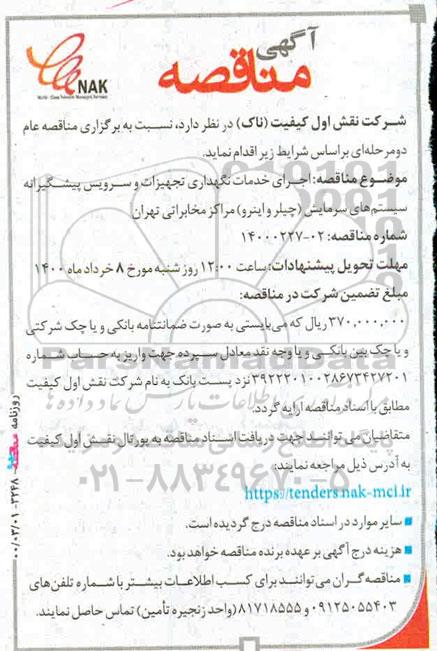 آگهی
مناقصه
NAK
شرکت نقش اول کیفیت (ناک) در نظر دارد، نسبت به برگزاری مناقصه عام
دومرحله‌ای براساس شرایط زیر اقدام نماید.
موضوع مناقصه: اجرای خدمات نگهداری تجهیزات و سرویس پیشگیرانه
سیستم‌های سرمایش (چیلر و اینرو) مراکز مخابراتی تهران
شماره مناقصه: ۰۲-۱۴۰۰۰۲۲۷
مهلت تحویل پیشنهادات: ساعت ۱۲:۰۰ روز شنبه مورخ ۸ خرداد ماه ۱۴۰۰
مبلغ تضمین شرکت در مناقصه:
۳۷۰,۰۰۰,۰۰۰ ریال که می‌بایستی به صورت ضمانتنامه بانکی و یا چک شرکتی
و یا چک بین بانکی و یا وجه نقد معادل سپرده جهت واریز به حساب شماره
۳۹۲۲۲۰۱۰۰۲۸۶۷۳۴۲۷۲۰۱ نزد پست بانک به نام شرکت نقش اول کیفیت
مطابق با اسناد مناقصه ارایه گردد.
متقاضیان می‌توانند جهت دریافت اسناد مناقصه به پورتال نقش اول کیفیت
به آدرس ذیل مراجعه نمایند:
https://tenders.nak-mci.ir
سایر موارد در اسناد مناقصه درج گردیده است.
هزینه درج آگهی بر عهده برنده مناقصه خواهد بود.
مناقصه‌گران می‌توانند برای کسب اطلاعات بیشتر با شماره تلفن‌های
۰۹۱۲۵۰۵۵۴۰۳ و ۸۱۷۱۸۵۵۵ (واحد زنجیره تأمین) تماس حاصل نمایند.
روزنامه
۰۰/۰۳/۰۱ - ۳۲۴۸
ParsNamadData
۰۲۱-۸۸۳۴۹۶۷۰-۵